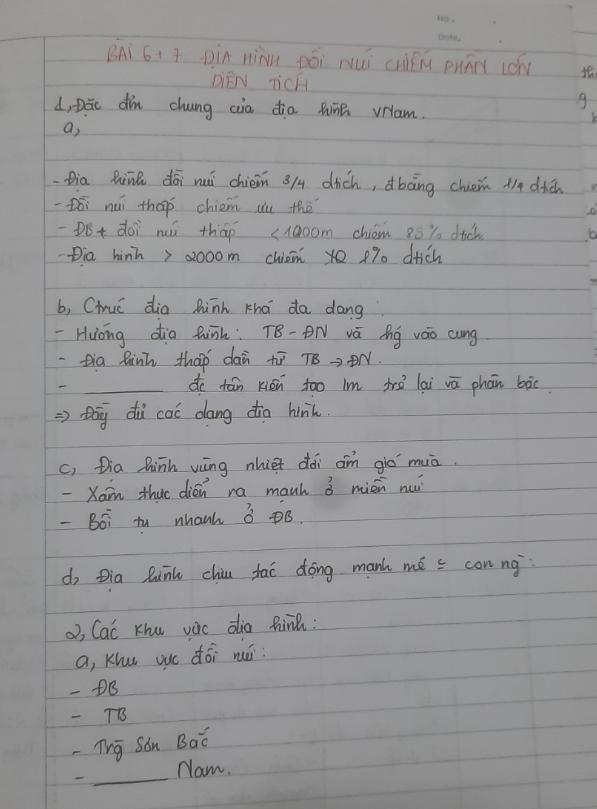 No.
Date.
BÀI 6+7 ĐỊA HÌNH ĐỒI NÚI CHIẾM PHẦN LỚN
DIỆN TÍCH
1, Đặc đỉm chung của địa hình VNam.
a,
- Địa hình đồi núi chiếm 3/4 dtích, đbằng chiếm 1/4 dtích
- Đồi núi thấp chiếm ưu thế
- ĐB + đồi núi thấp <1000m chiếm 85% dtích
- Địa hình > 2000m chiếm 1% dtích
b, Ctrúc địa hình khá đa dạng
- Hướng địa hình: TB-ĐN và hg vào cung.
- Địa hình thấp dần từ TB → ĐN.
- ______ đc tân kiến tạo lm trẻ lại và phân bậc.
=> Đầy đủ các dạng địa hình.
c, Địa hình vùng nhiệt đới ẩm gió mùa.
- Xâm thực diễn ra mạnh ở miền núi
- Bồi tụ nhanh ở ĐB.
d, Địa hình chịu tác động mạnh mẽ = con ng:
2, Các khu vực địa hình:
a, Khu vực đồi núi:
- ĐB
- TB
- Trg Sơn Bắc
- ______ Nam.